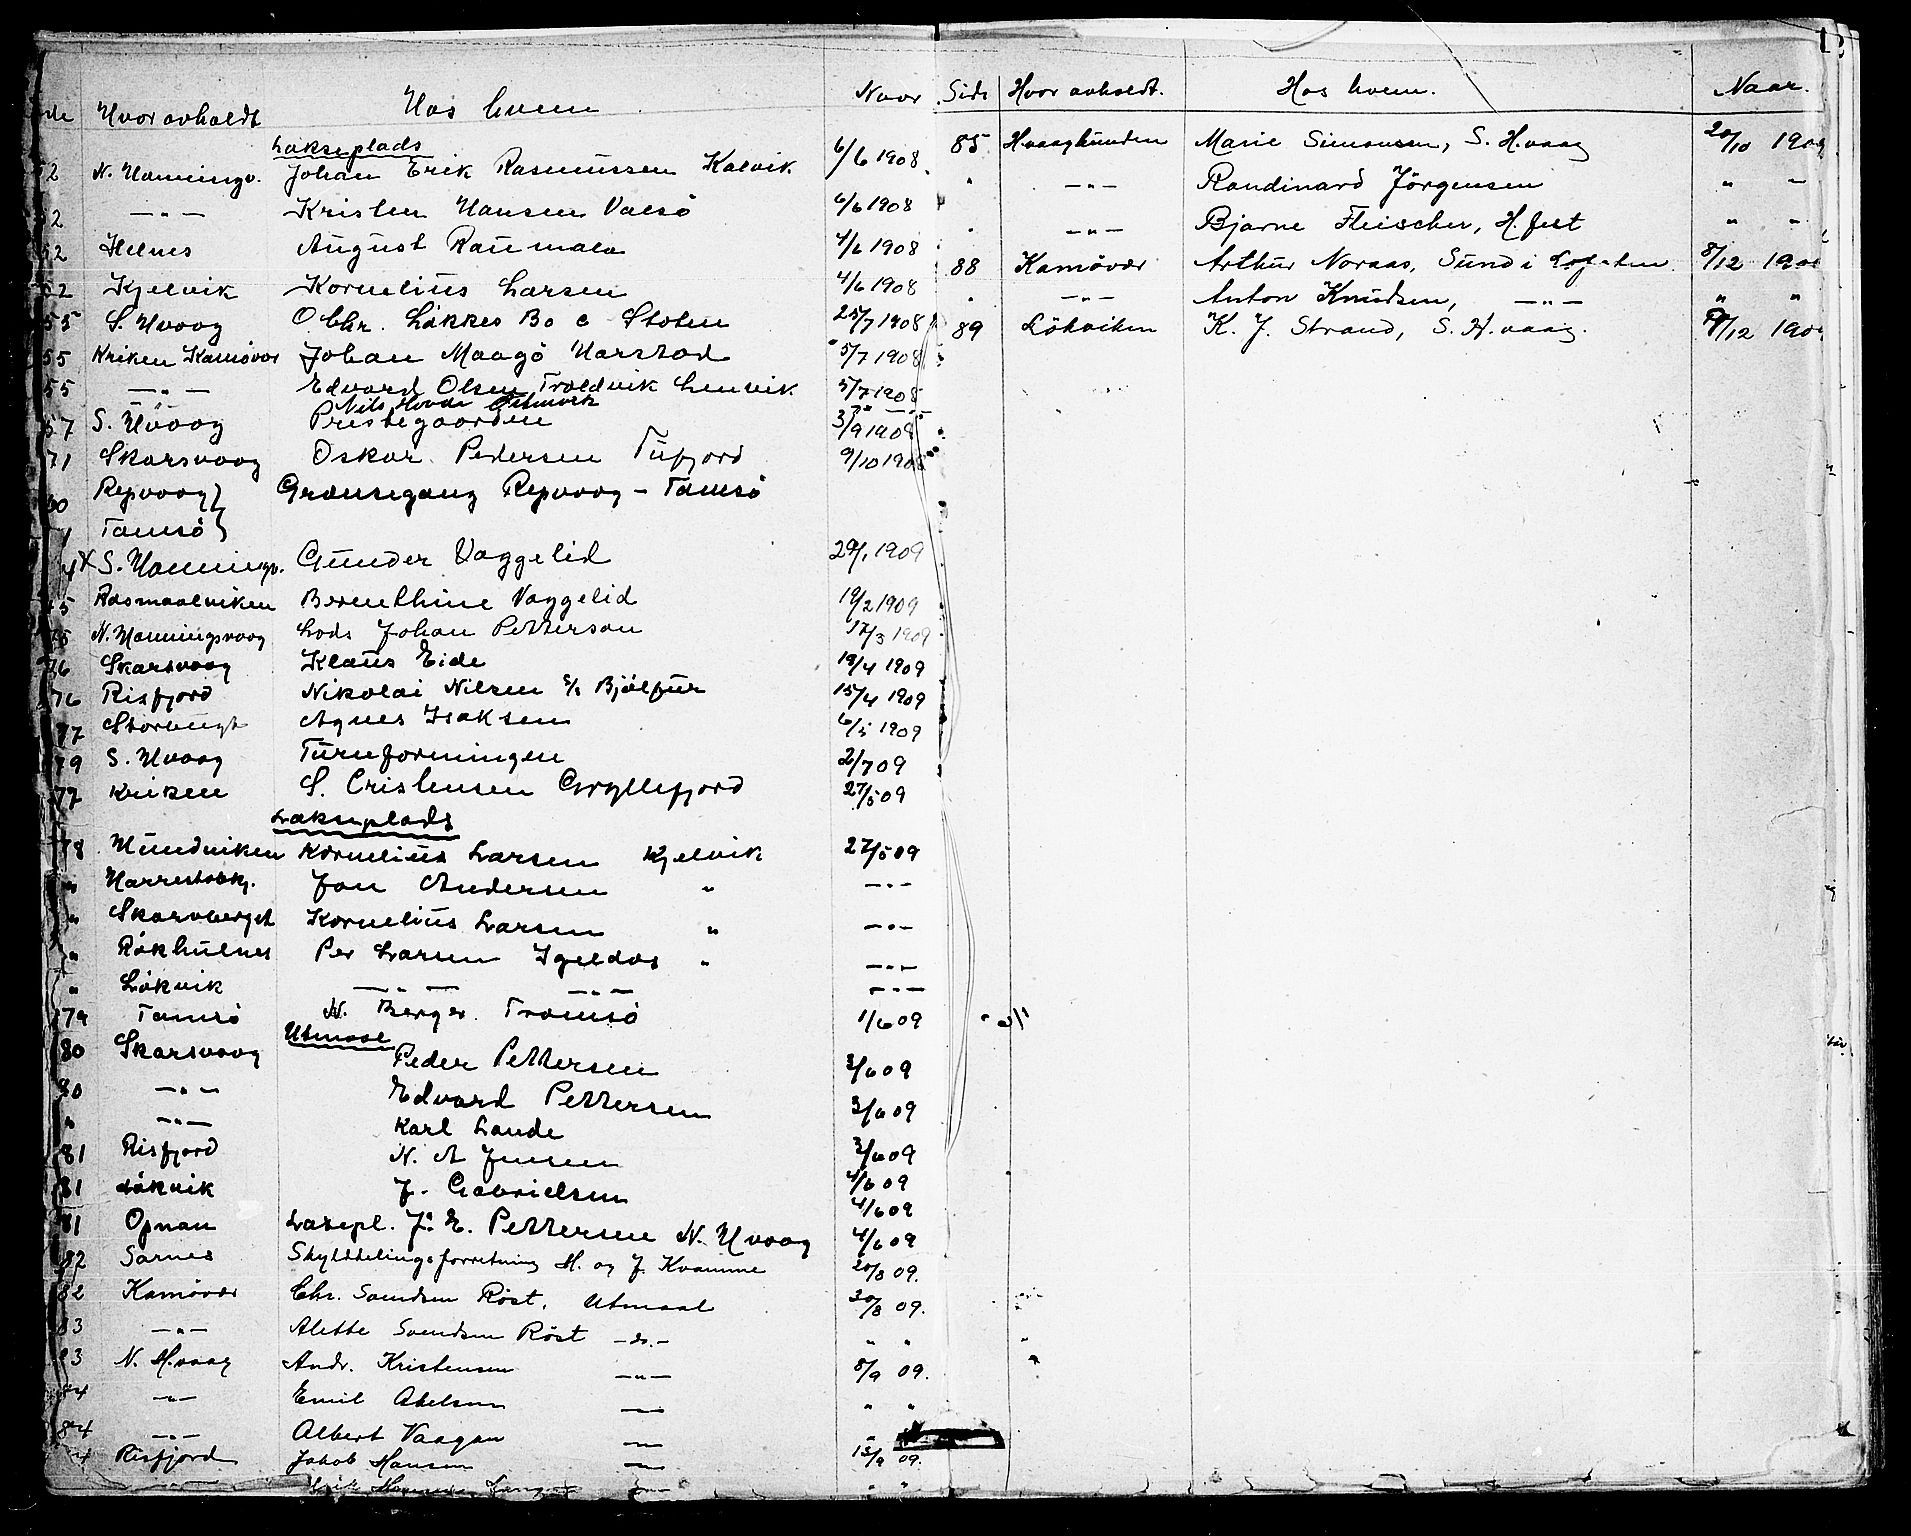 Hvor avholdt Hos hvem Naar
Lakseplads
N. Honningv. Johan Erik Rasmussen Kalvik 6/6 1908
52 —"— Kristen Hansen Valsö 6/6 1908
52 Helnes August Raumala 4/6 1908
52 Kjelvik Kornelius Larsen 4/6 1908
55 S. Hvaag O. Chr. Løkkes Bo 25/7 1908
55 Kriken Kamøvær Johan Maagö Harstad 5/7 1908
55 —"— Edvard Olsen Troldvik Lenvik 5/7 1908
Nils Hovde
57 S. Hvaag Prestegaarden 3/9 1908
71 Skarsvaag Oskar Pedersen Tufjord 9/10 1908
Repvaag } Grænsegang Repvaag - Tamsö
Tamsö }
X S. Honningv. Gunder Vaggelid 29/1 1909
75 Rosmaalviken Bernthine Vaggelid 19/2 1909
N. Honningsvaag Lods Johan Petterson 17/3 1909
76 Skarsvaag Klaus Eide 19/4 1909
76 Risfjord Nikolai Nilsen s/s Bjölfur 15/4 1909
77 Storbugt Agnes Isaksen 6/5 1909
79 S. Hvaag Turnforningen 2/7 09
77 Kriken S. Cristensen Gryllefjord 27/5 09
Lakseplads
78 Mundviken Kornelius Larsen Kjelvik 27/5 09
" Jon Andersen " —"—
" Skarvberget Kornelius Larsen " —"—
" Per Larsen Igeldas " —"—
" Lökvik —"— —"— —"—
79 Tamsö N. Berger Tromsö 1/6 09
Utmaal
80 Skarsvaag Peder Pettersen 3/6 09
80 —"— Edvard Pettersen 3/6 09
" —"— Karl Lande 3/6 09
81 Risfjord N. A Jensen 4/6 09
81 Lökvik J. Gabrielsen 4/6 09
81 Opnan Laksepl. J. E. Pettersen N. Hvaag 4/6 09
82 Sarnes Skylddelingsforretning H. og J. Kvamme 20/8 09.
82 Kamøvær Chr. Svendsen Röst, Utmaal 30/8 09.
83 —"— Alette Svendsen Röst —do.— " "
83 N. H.vaag Andr. Kristensen —"— 8/9 09.
84 —"— Emil Abelsen —"— " "
84 —"— Albert Vaagan —"— "
Risfjord Jakob Hansen —"— 15/9 09.
12
Side Hvor avholdt. Hos hvem. Naar.
85 Hvaagbunden Marie Simonsen, S. H.vaag 20/10 1909
" —"— Randinard Jörgensen " —
" —"— Bjarne Fleischer, H.fest " —
88 Kamøvær Arthur Noraas, Sund i Lofoten 8/12 190
" —"— Anton Knudsen, —"— " "
89 Lökviken K. J. Strand, S. H.vaag. /12 190